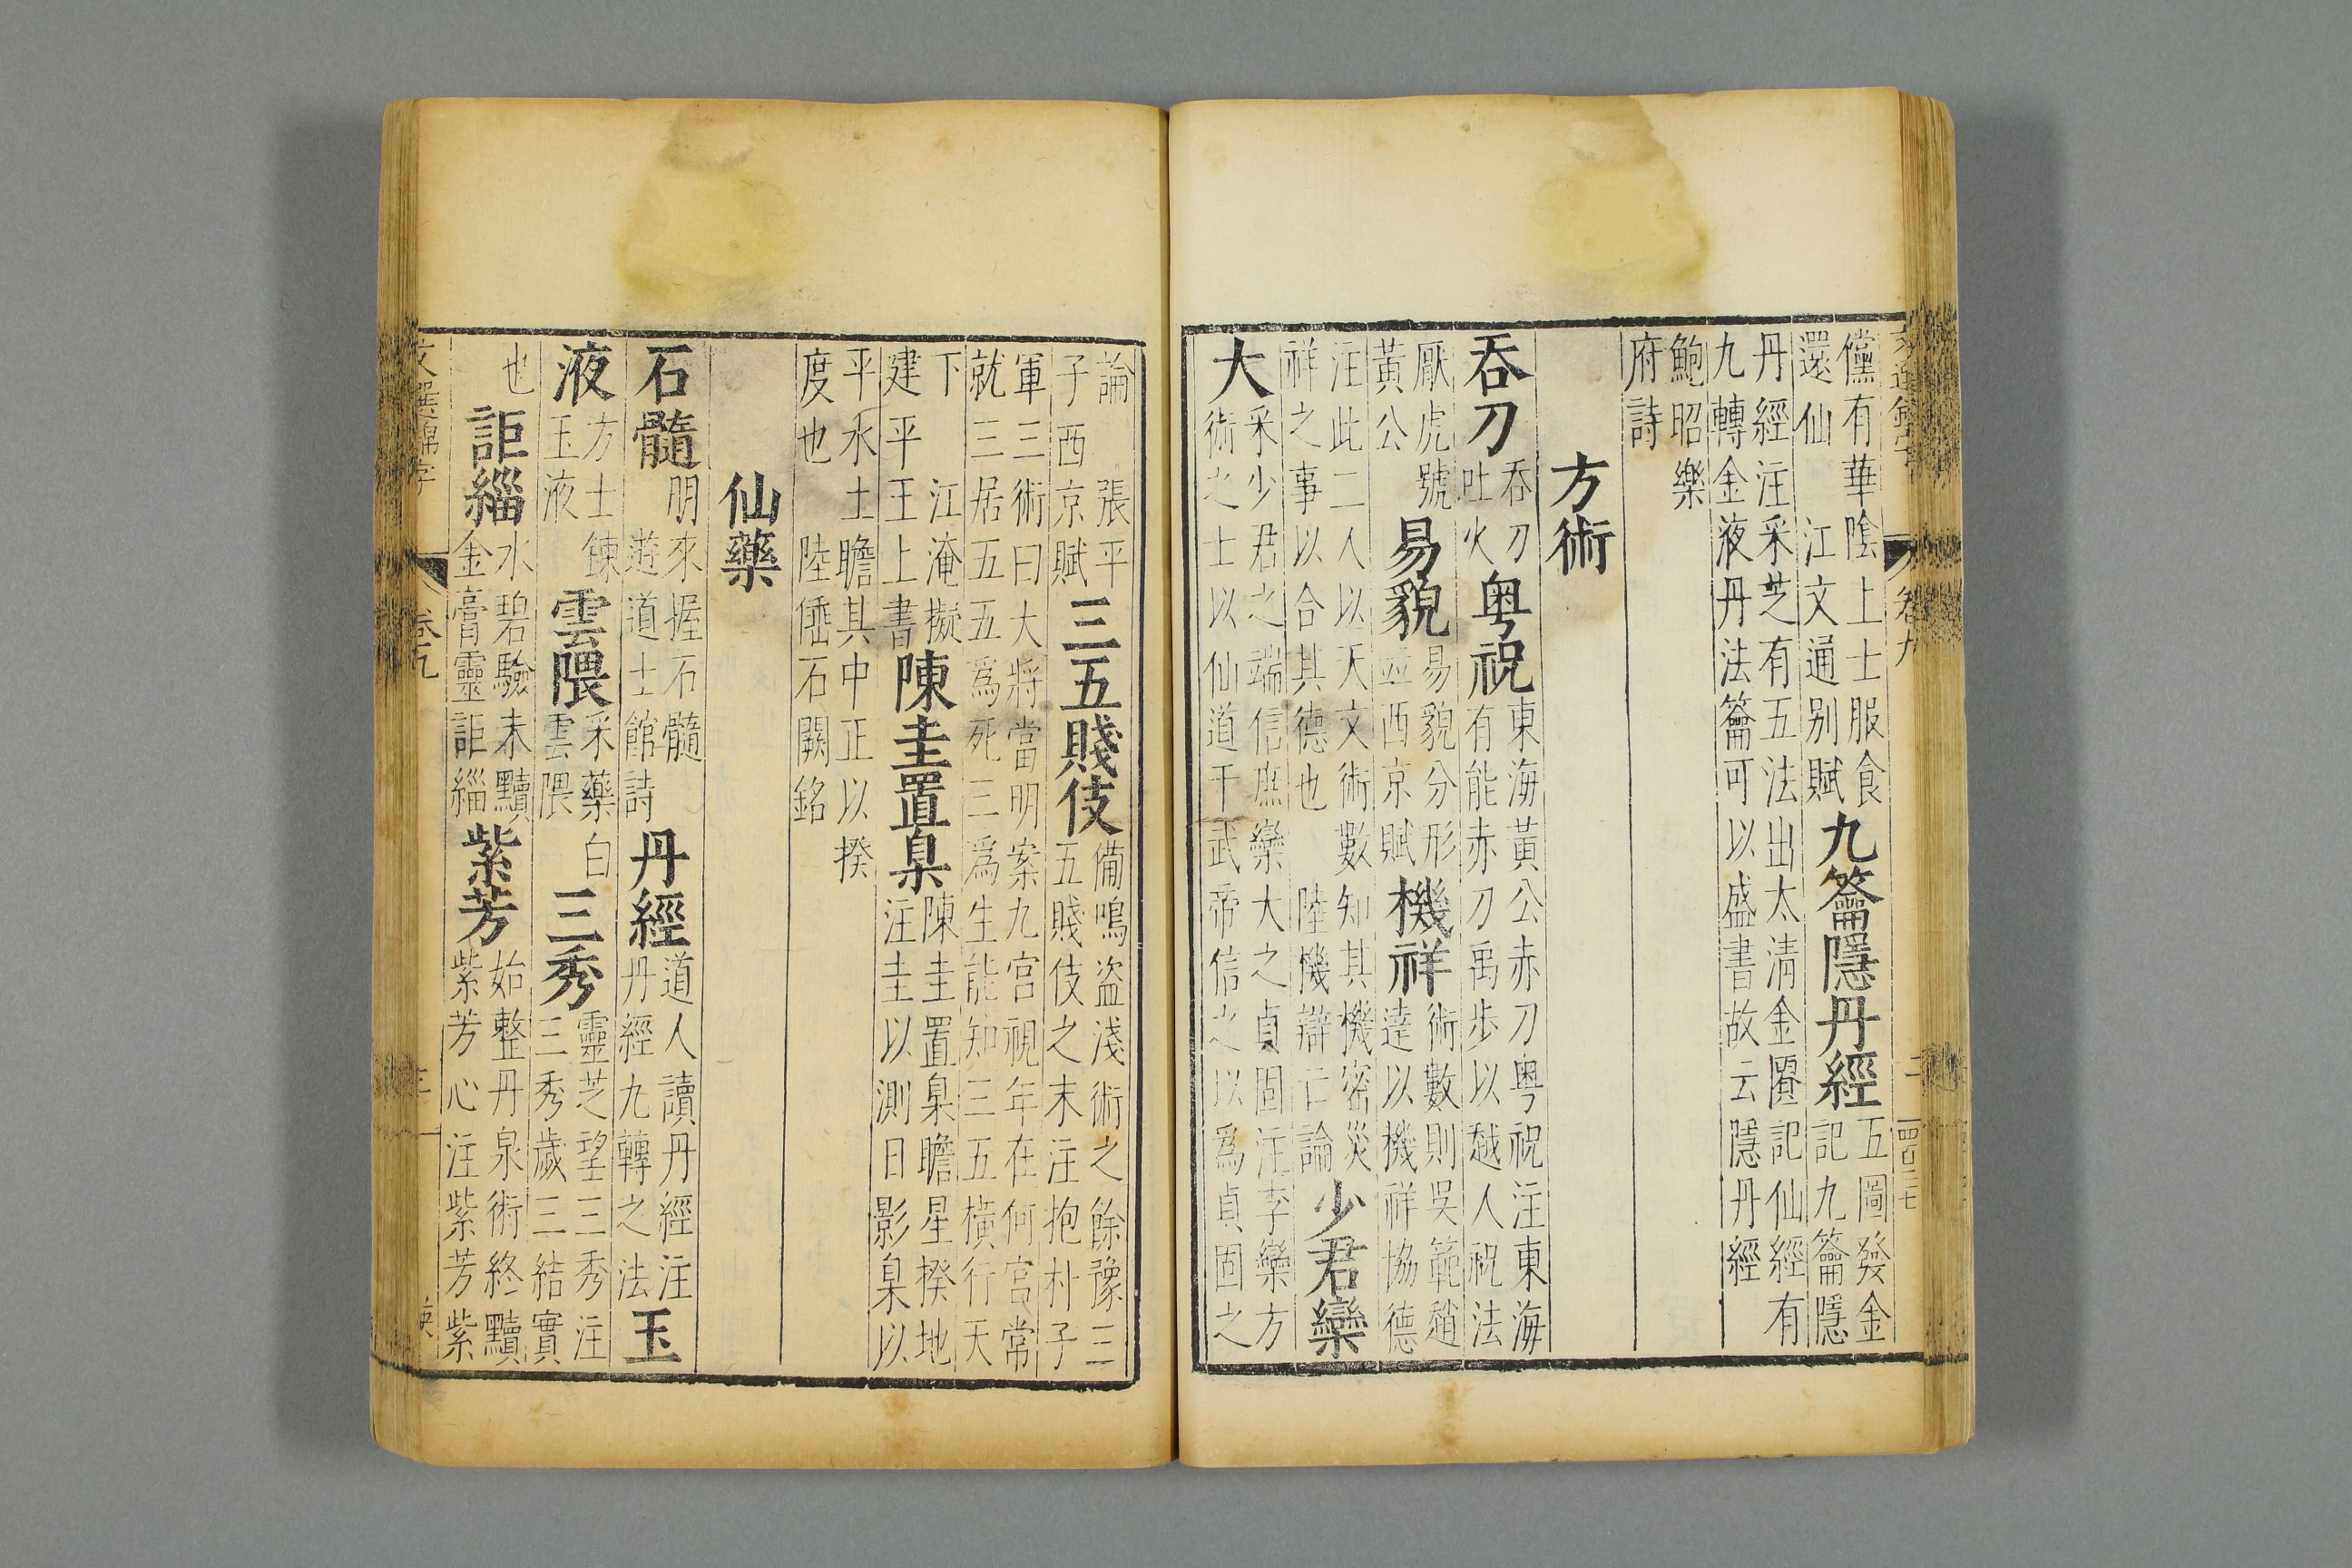 卷九 二
儻有華陰上士服食還仙 江文通别賦 九籥隱丹經 五圖發金記九籥隱
丹經注采芝有五法出太清金匱記仙經有九轉金液丹法籥可以盛書故云隱丹經
鮑昭樂府詩
方術
吞刀 吞刀吐火 粤祝 東海黃公赤刀粤祝注東海有能赤刀禹步以越人祝法
厭虎號黃公 易貌 易貌分形並西京賦 機祥 術數則吳範趙達以機祥協德
注此二人以天文術數知其機密災祥之事以合其德也 陸機辯亡論 少君欒
大 采少君之端信庶欒大之貞固注李欒方術之士以仙道干武帝信之以爲貞固之
論 張平子西京賦 三五賤伎 備鳴盗淺術之餘豫三五賤伎之末注抱朴子
軍三術曰大將當明案九宫視年在何宫常就三居五五爲死三爲生能知三五横行天
下 江淹擬建平王上書 陳圭置臬 陳圭置臬瞻星揆地注圭以測日影臬以
平水土瞻其中正以揆度也 陸倕石闕銘
仙藥
石髓 朋來握石髓遊道士館詩 丹經 道人讀丹經注丹經九轉之法 玉
液 方士鍊玉液 雲隈 采藥白雲隈 三秀 靈芝望三秀注三秀歲三結實
也 詎緇 水碧驗未黷金膏靈詎緇 紫芳 始整丹泉術終黷紫芳心注紫芳紫
文選錦字 卷九 三